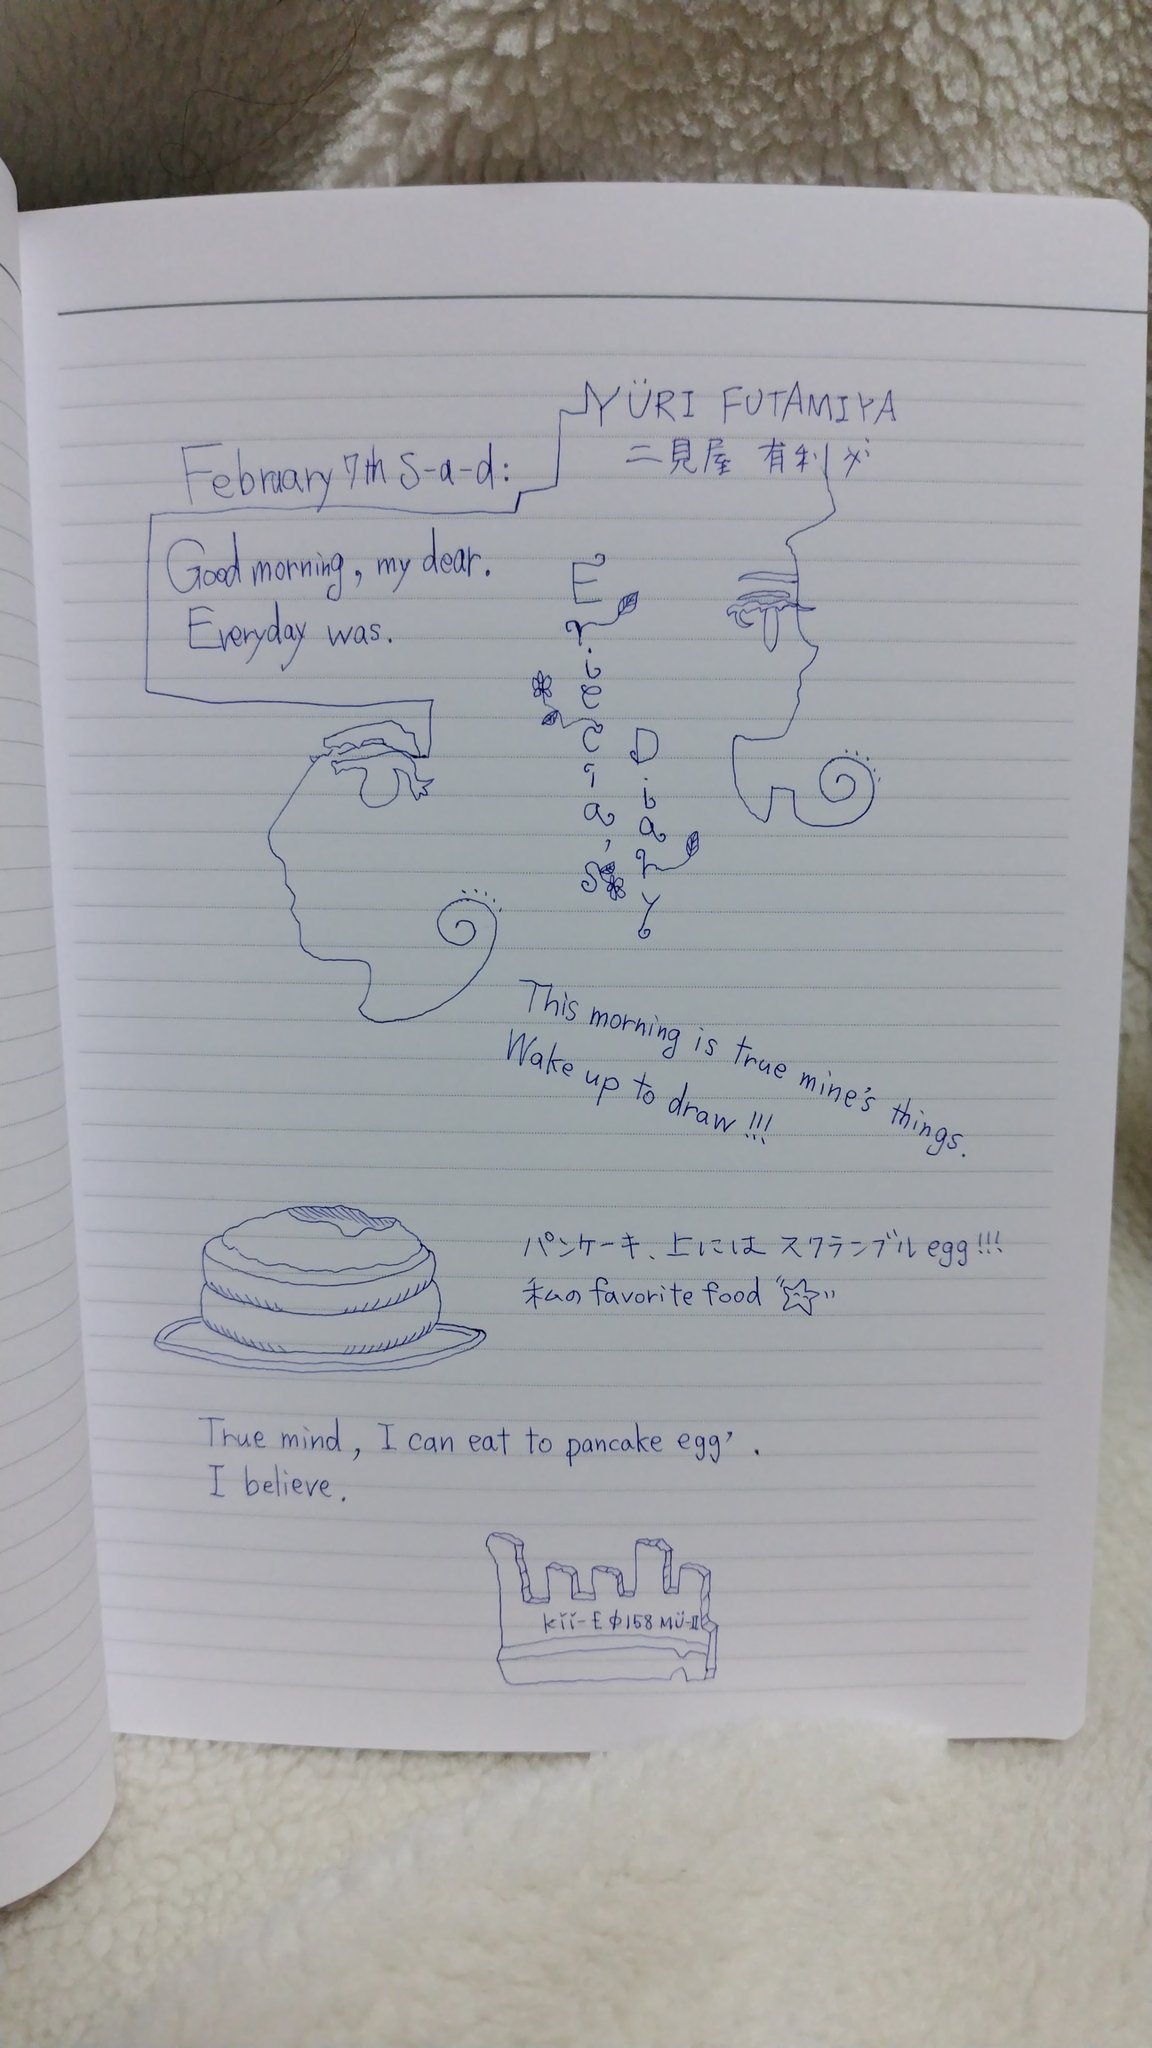 YÜRI FUTAMIYA
二見屋 有利
February 7th S-a-d:
Good morning, my dear.
Everyday was.
Eriecia's
Diary
This morning is true mine's things.
Wake up to draw!!!
パンケーキ、上には スクランブル egg!!!
私の favorite food
True mind, I can eat to pancake egg'.
I believe.
kïï-E φ158 MÜ-II